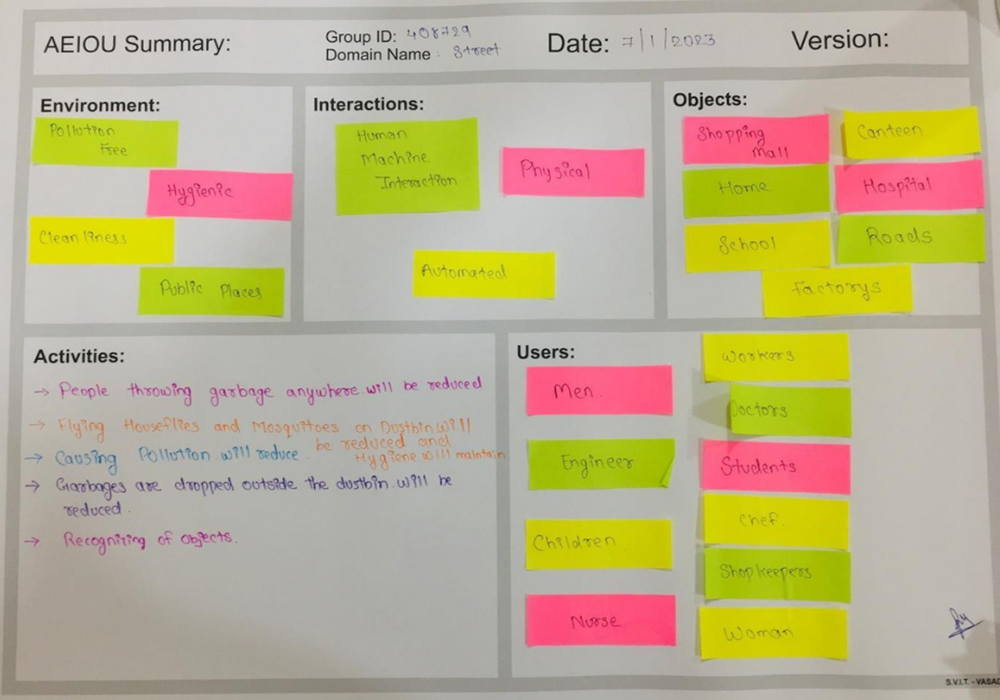 AEIOU Summary:
Group ID: 408729
Domain Name : Street
Date: 7/1/2023
Version:
Environment:
Pollution
Free
Hygienic
Cleanliness
Public Places
Interactions:
Human
Machine
Interaction
Physical
Automated
Objects:
Shopping
Mall
Canteen
Home
Hospital
School
Roads
Factorys
Activities:
→ People throwing garbage anywhere will be reduced
→ Flying Houseflies and Mosquitoes on Dustbin will
be reduced and
Hygiene will maintain
→ Causing Pollution will reduce.
→ Garbages are dropped outside the dustbin will be
reduced.
→ Recognizing of objects.
Users:
Men.
Engineer
Children
Nurse
Workers
Doctors
Students
Chef.
Shopkeepers
Woman
S.V.I.T. - VASAD